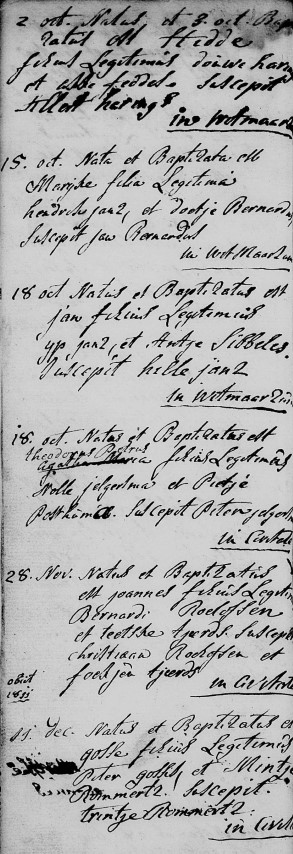 2 oct. Natus, et 3. oct. Bap
tatus est Hedde
filius Legitimus douwe
et feddes. Suscepit
in Wotmaar
15. oct. Nata et Baptizata est
Marijke filia Legitima
hendrik janz, et doetje Bernardus
Suscepit jan Bernardus
in Wotmaarsum
18 oct Natus et Baptizatus est
jan filius Legitimus
yp janz, et Antje Sibbeles.
Suscepit hille janz
in Wotmaar
18. oct. Natus et Baptizatus est
theodorus Petrus
filius Legitimus
jelgersma et Pietje
Posthuma. Suscepit Peter jelgers
in
28. Nov. Natus et Baptizatus
est joannes filius Legiti
Bernardi Roelofsen
et teetske tjerds. Suscepit
christiaan Roelofsen et
foekjen tjerds
obiit
1811
in Civitate
11. dec. Natus et Baptizatus es
gosse filius Legitimus
Peter et Mintje
Rommertz. Suscepit.
trintje Rommertz.
in Civit